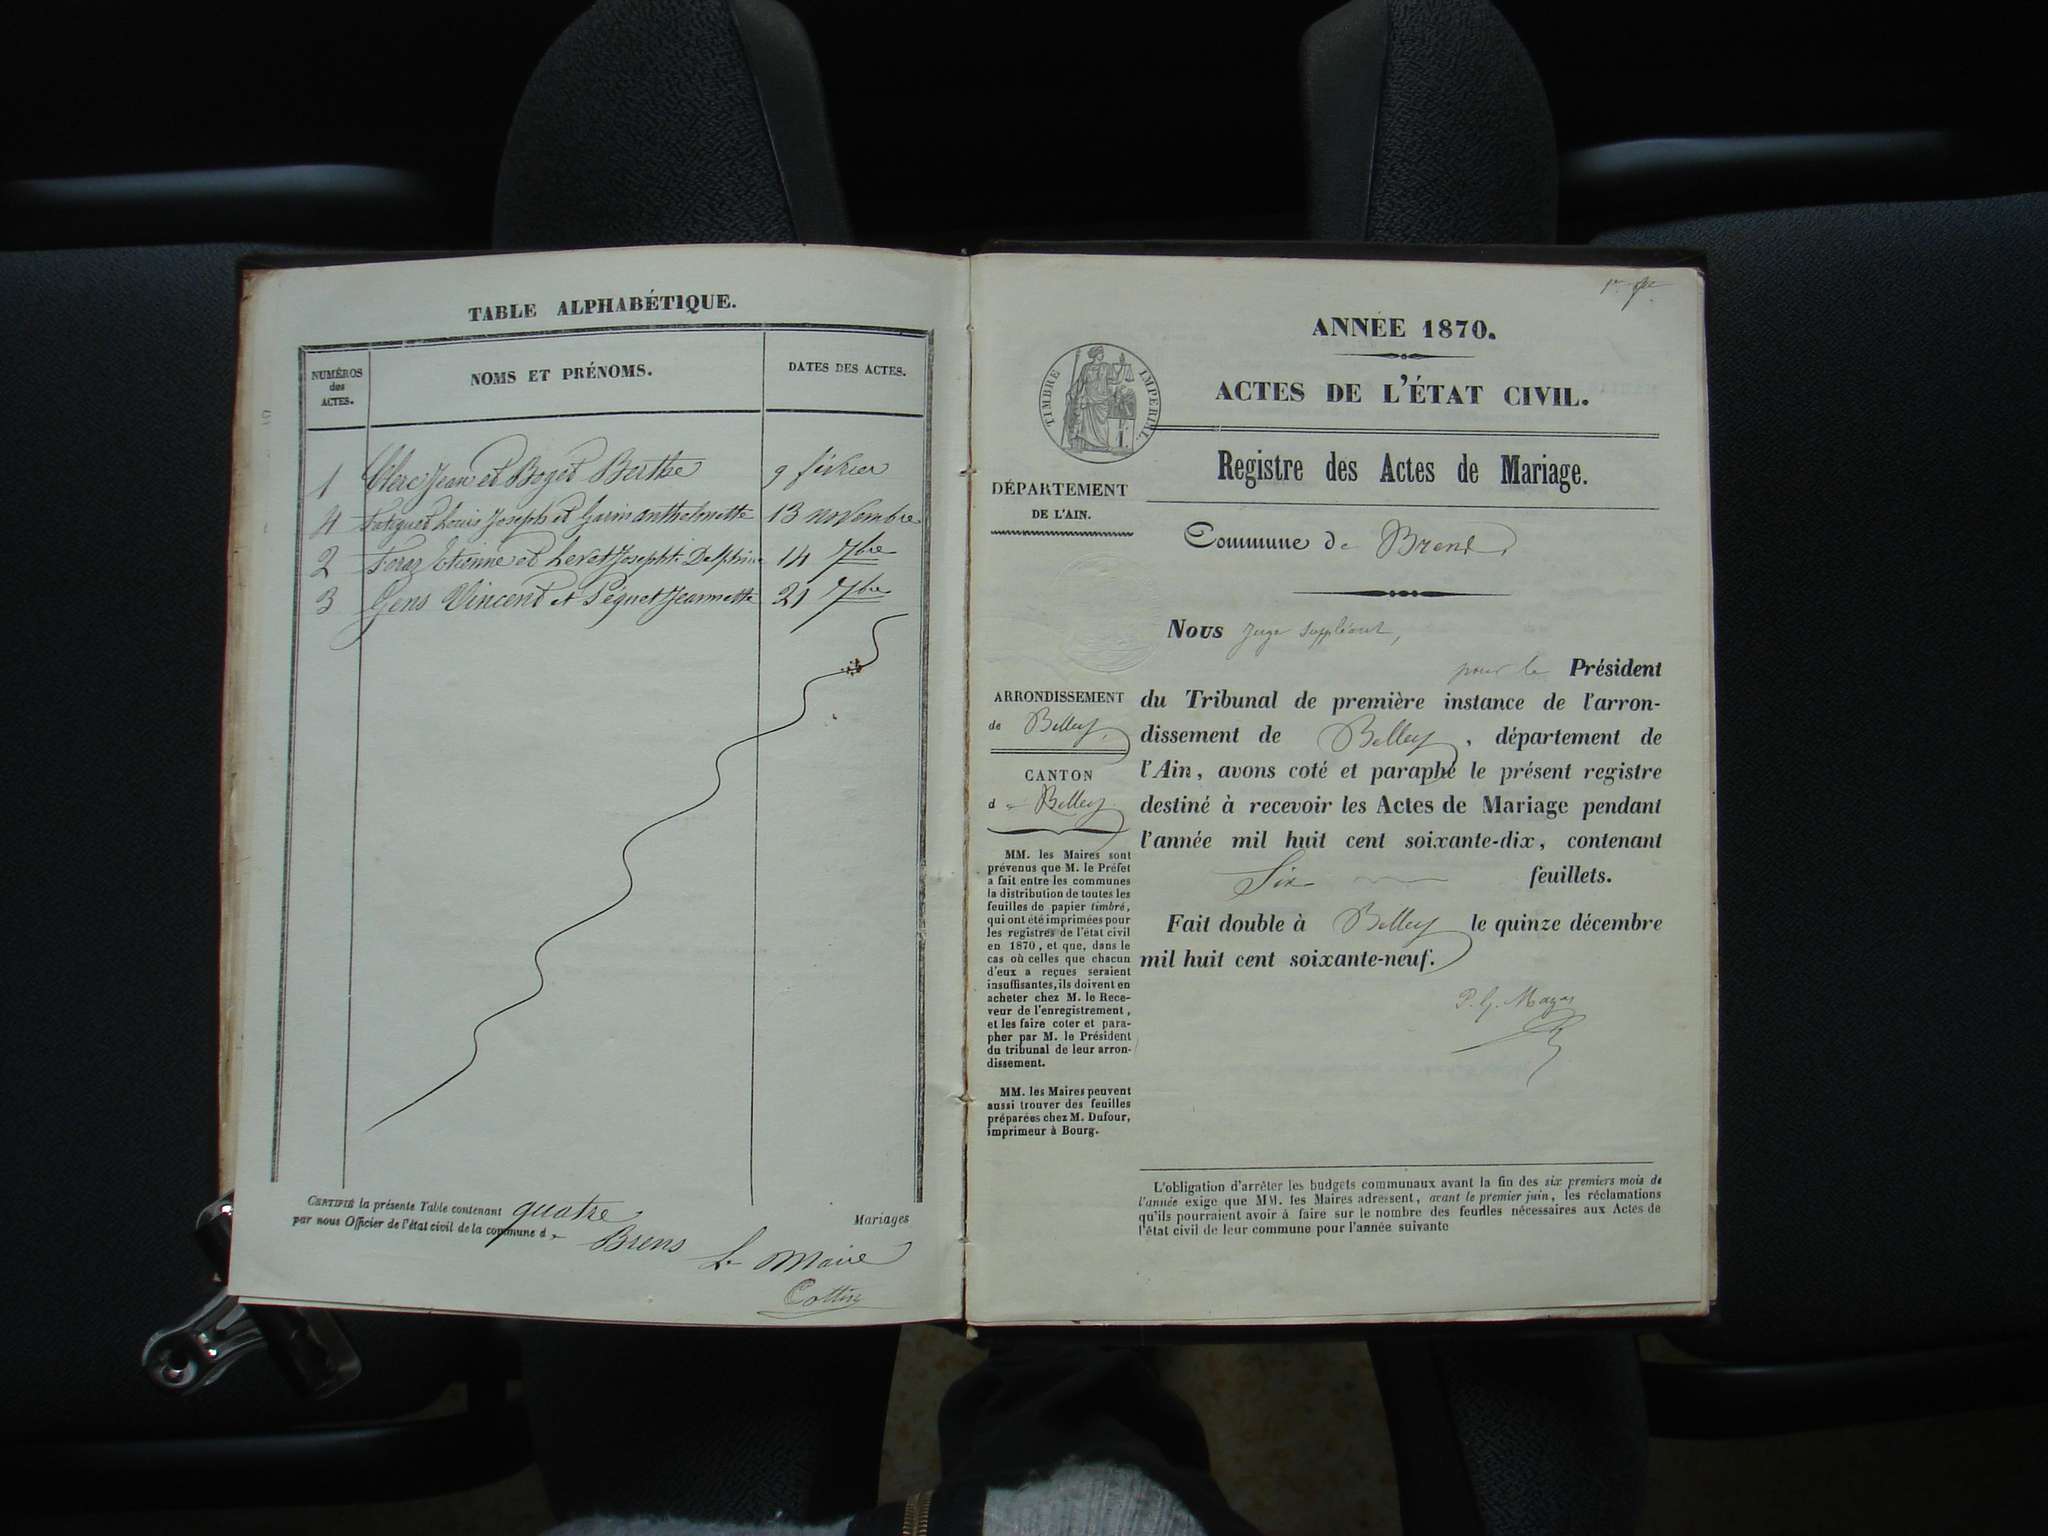 TABLE ALPHABÉTIQUE.
NUMÉROS
des
ACTES.
NOMS ET PRÉNOMS.
DATES DES ACTES.
1 Clerc Jean et Boget Berthe 9 février
4 Louis Joseph et Garin Anthelmette 13 novembre
2 Foraz Etienne et Levet Josephte Delphine 14 7bre
3 Gens Vincent et Péquet Jeannette 21 7bre
CERTIFIÉ la présente Table contenant quatre Mariages
par nous Officier de l'état civil de la commune de Brens
Le Maire
Cottin
ANNÉE 1870.
ACTES DE L'ÉTAT CIVIL.
TIMBRE IMPÉRIAL.
Registre des Actes de Mariage.
DÉPARTEMENT
DE L'AIN.
Commune de Brens
Nous Juge Suppléant,
pour le Président
du Tribunal de première instance de l'arron-
dissement de Belley, département de
l'Ain, avons coté et paraphé le présent registre
destiné à recevoir les Actes de Mariage pendant
l'année mil huit cent soixante-dix, contenant
Six feuillets.
Fait double à Belley le quinze décembre
mil huit cent soixante-neuf.
ARRONDISSEMENT
de Belley,
CANTON
de Belley
MM. les Maires sont
prévenus que M. le Préfet
a fait entre les communes
la distribution de toutes les
feuilles de papier timbré,
qui ont été imprimées pour
les registres de l'état civil
en 1870, et que, dans le
cas où celles que chacun
d'eux a reçues seraient
insuffisantes, ils doivent en
acheter chez M. le Rece-
veur de l'enregistrement,
et les faire coter et para-
pher par M. le Président
du tribunal de leur arron-
dissement.
MM. les Maires peuvent
aussi trouver des feuilles
préparées chez M. Dufour,
imprimeur à Bourg.
L'obligation d'arrêter les budgets communaux avant la fin des six premiers mois de
l'année exige que MM. les Maires adressent, avant le premier juin, les réclamations
qu'ils pourraient avoir à faire sur le nombre des feuilles nécessaires aux Actes de
l'état civil de leur commune pour l'année suivante